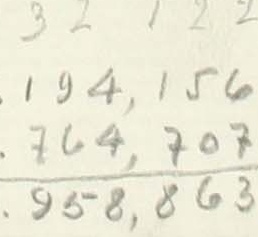 32 122
. 194,156
. 764,707
. 958,863